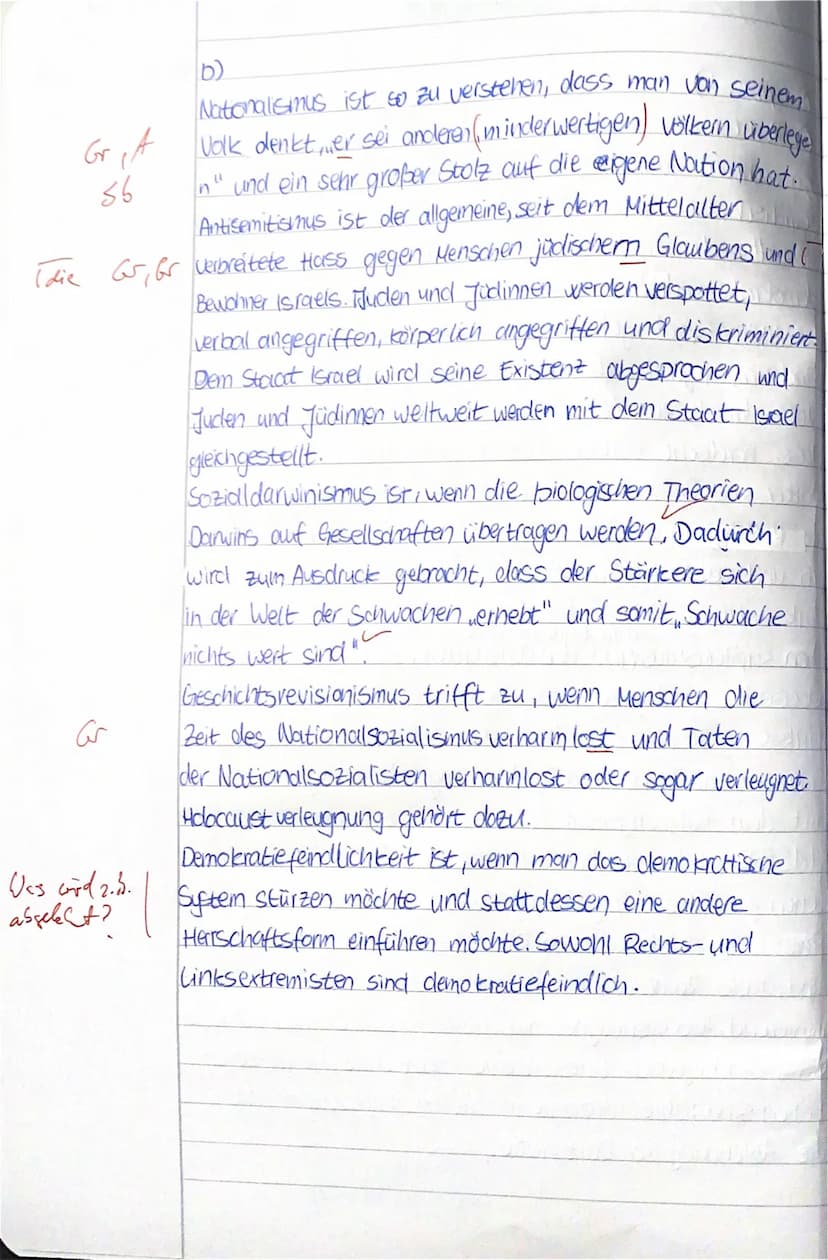 b)
Nationalismus ist so zu verstehen, dass man von seinem
Gr, A Volk denkt, „er sei anderen (minderwertigen) Völkern überlege
Sb n" und ein sehr großer Stolz auf die eigene Nation hat.
Antisemitismus ist der allgemeine, seit dem Mittelalter
Γdie Gr, Gr verbreitete Hass gegen Menschen jüdischem Glaubens und Γ
Bewohner Israels. Juden und Jüdinnen werden verspottet,
verbal angegriffen, körperlich angegriffen und diskriminiert.
Dem Staat Israel wird seine Existenz abgesprochen und
Juden und Jüdinnen weltweit werden mit dem Staat Israel
gleichgestellt.
Sozialdarwinismus ist, wenn die biologischen Theorien
Darwins auf Gesellschaften übertragen werden. Dadurch
wird zum Ausdruck gebracht, dass der Stärkere sich
in der Welt der Schwachen „erhebt" und somit „Schwache
nichts wert sind".
Geschichtsrevisionismus trifft zu, wenn Menschen die
Gr Zeit des Nationalsozialismus verharmlost und Taten
der Nationalsozialisten verharmlost oder sogar verleugnet.
Holocaustverleugnung gehört dazu.
Demokratiefeindlichkeit ist, wenn man das demokratische
Was wird z.B. System stürzen möchte und stattdessen eine andere
abgelehnt? Herrschaftsform einführen möchte. Sowohl Rechts- und
Linksextremisten sind demokratiefeindlich.